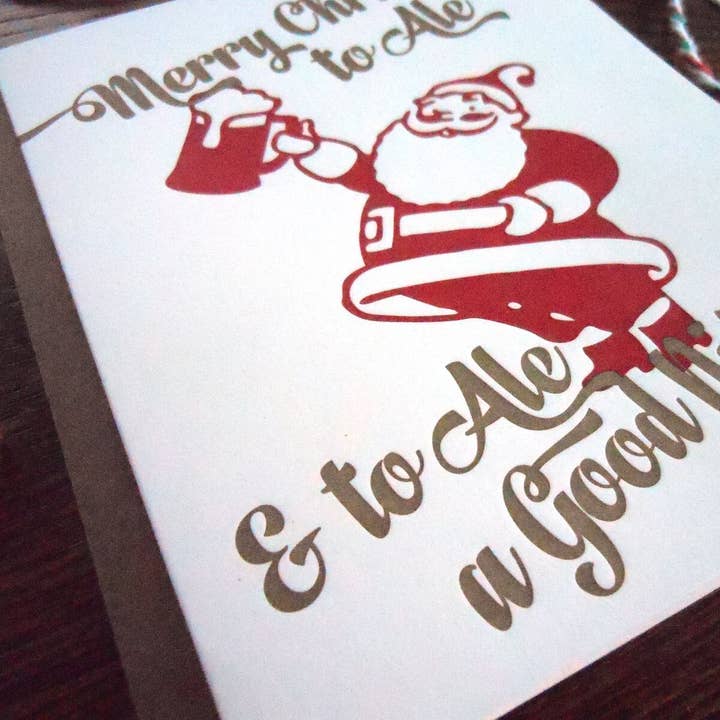 Merry Chr
to Ale
& to Ale
a Good Ni